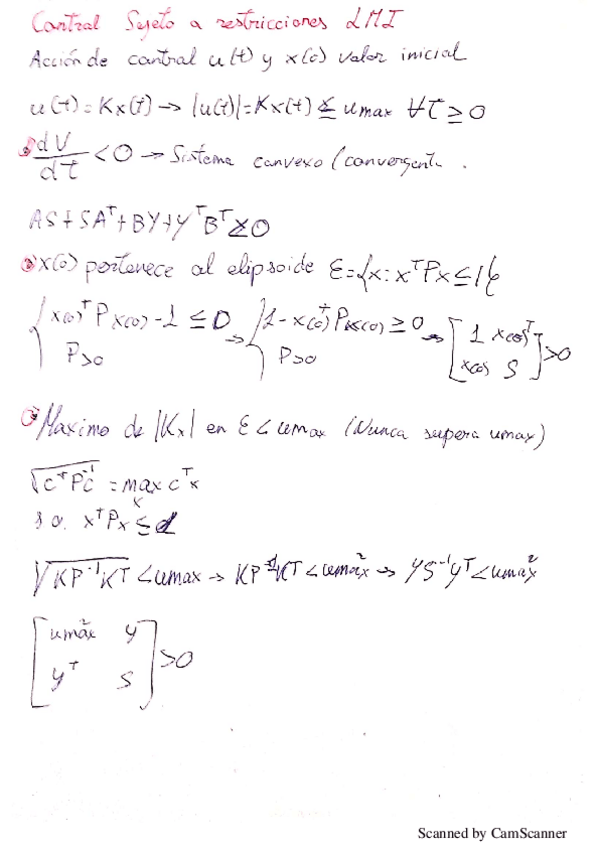 Control Sujeto a restricciones LMI
Acción de control u(t) y x(0) valor inicial
u(t)=Kx(t) → |u(t)|=Kx(t) ≤ umax ∀t ≥ 0
dV/dt < 0 → Sistema convexo (convergente.
AS+SA^T+BY+Y^TB^T ≤ 0
x(0) pertenece al elipsoide Ɛ={x: x^TPx ≤ 1}
{ x(0)^T P x(0) - 1 ≤ 0 → { 1-x(0)^T P x(0) ≥ 0 → [ 1 x(0)^T
P>0 P>0 x(0) S ] >0
Maximo de |Kx| en Ɛ < umax (Nunca supera umax)
√(c^T P^-1 c) = max c^T x
x
s.a. x^T P x ≤ d
√(KP^-1K^T) < umax → KP^-1K^T < umax^2 → YS^-1Y^T < umax^2
[ umax^2 Y
Y^T S ] >0
Scanned by CamScanner